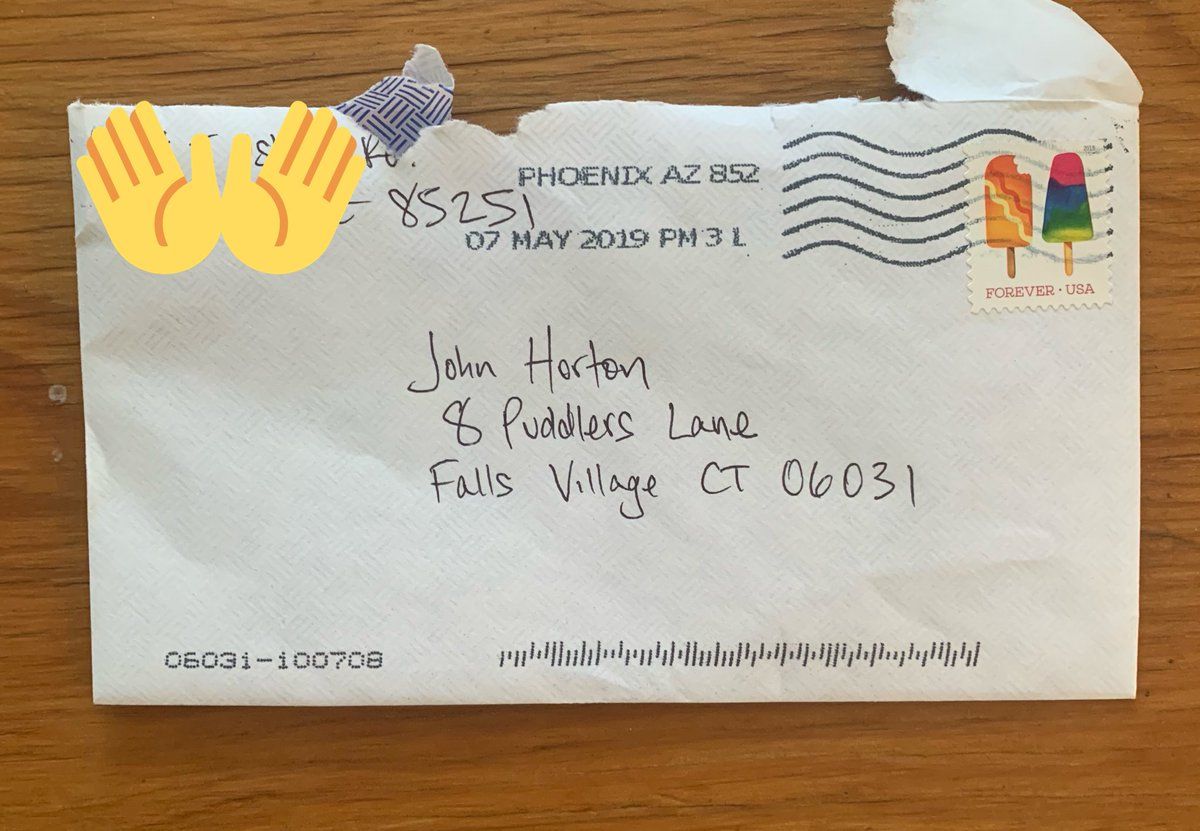 Rd.
85251
PHOENIX AZ 852
07 MAY 2019 PM 3 L
2018
FOREVER · USA
John Horton
8 Puddlers Lane
Falls Village CT 06031
06031-100708